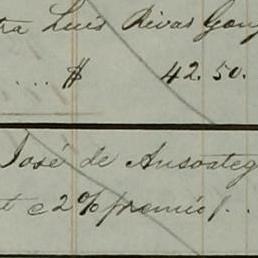 tra Luis Rivas Gonz
.... $ 42.50.
José de Ansoateg
t c 2% premio/. .